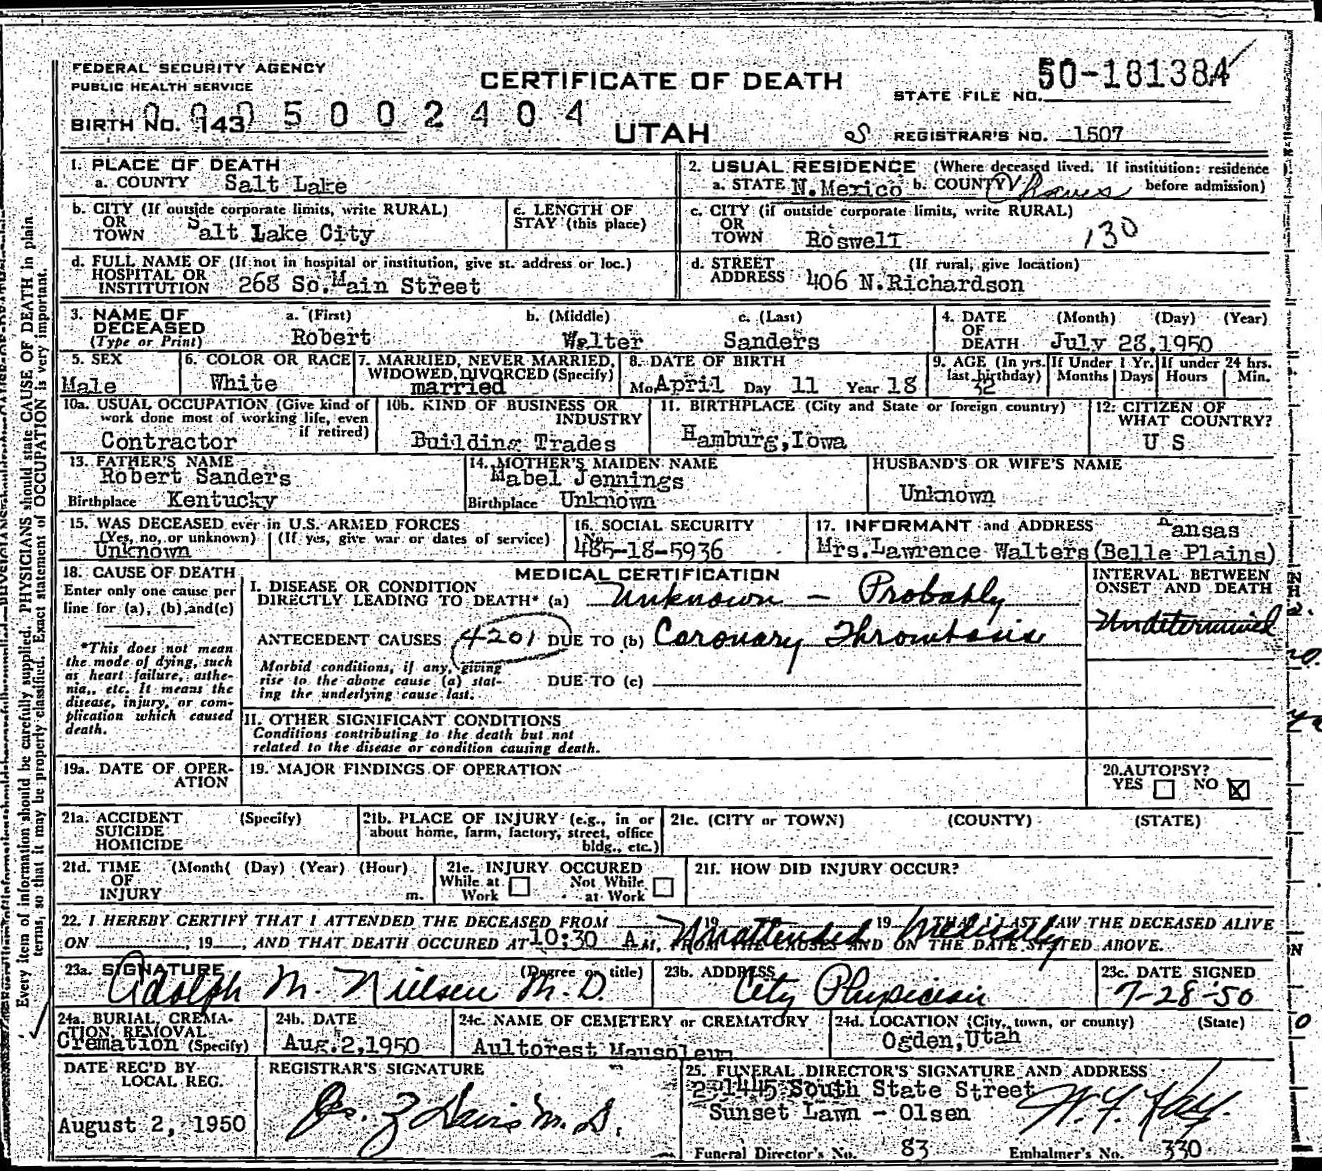 FEDERAL SECURITY AGENCY
PUBLIC HEALTH SERVICE
CERTIFICATE OF DEATH
UTAH
STATE FILE NO. 50-181384
BIRTH NO. 143 5002404
REGISTRAR'S NO. 1507
1. PLACE OF DEATH
a. COUNTY Salt Lake
2. USUAL RESIDENCE (Where deceased lived. If institution: residence before admission)
a. STATE N.Mexico b. COUNTY Chaves
b. CITY (If outside corporate limits, write RURAL)
OR
TOWN Salt Lake City
c. LENGTH OF
STAY (this place)
c. CITY (if outside corporate limits, write RURAL)
OR
TOWN Roswell 130
d. FULL NAME OF (If not in hospital or institution, give st. address or loc.)
HOSPITAL OR
INSTITUTION 268 So.Main Street
d. STREET (If rural, give location)
ADDRESS 406 N.Richardson
3. NAME OF
DECEASED
(Type or Print)
a. (First) b. (Middle) c. (Last)
Robert Walter Sanders
4. DATE (Month) (Day) (Year)
OF
DEATH July 28,1950
5. SEX
Male
6. COLOR OR RACE
White
7. MARRIED, NEVER MARRIED,
WIDOWED, DIVORCED (Specify)
married
8. DATE OF BIRTH
Mo April Day 11 Year 18
9. AGE (In yrs. last birthday)
32
If Under 1 Yr.
Months Days
If under 24 hrs.
Hours Min.
10a. USUAL OCCUPATION (Give kind of
work done most of working life, even
if retired)
Contractor
10b. KIND OF BUSINESS OR
INDUSTRY
Building Trades
11. BIRTHPLACE (City and State or foreign country)
Hamburg,Iowa
12. CITIZEN OF
WHAT COUNTRY?
U S
13. FATHER'S NAME
Robert Sanders
Birthplace Kentucky
14. MOTHER'S MAIDEN NAME
Mabel Jennings
Birthplace Unknown
HUSBAND'S OR WIFE'S NAME
Unknown
15. WAS DECEASED ever in U.S. ARMED FORCES
(Yes, no, or unknown) (If yes, give war or dates of service)
Unknown
16. SOCIAL SECURITY
No.
485-18-5936
17. INFORMANT and ADDRESS Kansas
Mrs.Lawrence Walters(Belle Plains)
18. CAUSE OF DEATH
Enter only one cause per
line for (a), (b),and(c)
*This does not mean
the mode of dying, such
as heart failure, asthe-
nia,, etc. It means the
disease, injury, or com-
plication which caused
death.
MEDICAL CERTIFICATION
I. DISEASE OR CONDITION
DIRECTLY LEADING TO DEATH* (a) Unknown — Probably
ANTECEDENT CAUSES 4201 DUE TO (b) Coronary Thrombosis
Morbid conditions, if any, giving
rise to the above cause (a) stat-
ing the underlying cause last.
DUE TO (c)
INTERVAL BETWEEN
ONSET AND DEATH
Undetermined
II. OTHER SIGNIFICANT CONDITIONS
Conditions contributing to the death but not
related to the disease or condition causing death.
19a. DATE OF OPER-
ATION
19. MAJOR FINDINGS OF OPERATION
20. AUTOPSY?
YES NO X
21a. ACCIDENT (Specify)
SUICIDE
HOMICIDE
21b. PLACE OF INJURY (e.g., in or
about home, farm, factory, street, office
bldg., etc.)
21c. (CITY or TOWN) (COUNTY) (STATE)
21d. TIME (Month( (Day) (Year) (Hour)
OF
INJURY m.
21e. INJURY OCCURED
While at Not While
Work at Work
21f. HOW DID INJURY OCCUR?
22. I HEREBY CERTIFY THAT I ATTENDED THE DECEASED FROM 19 19 THAT I LAST SAW THE DECEASED ALIVE
Unattended Medically
ON , 19 , AND THAT DEATH OCCURED AT 10:30 A M, FROM THE CAUSES AND ON THE DATE STATED ABOVE.
23a. SIGNATURE (Degree or title)
Adolph M. Nielsen M.D.
23b. ADDRESS
City Physician
23c. DATE SIGNED
7-28-50
24a. BURIAL, CREMA-
TION, REMOVAL
Cremation (Specify)
24b. DATE
Aug.2,1950
24c. NAME OF CEMETERY or CREMATORY
Aultorest Mausoleum
24d. LOCATION (City, town, or county) (State)
Ogden,Utah
DATE REC'D BY
LOCAL REG.
August 2, 1950
REGISTRAR'S SIGNATURE
25. FUNERAL DIRECTOR'S SIGNATURE AND ADDRESS
South State Street
Sunset Lawn - Olsen
Funeral Director's No. 83 Embalmer's No. 330
Every item of information should be carefully supplied. PHYSICIANS should state CAUSE OF DEATH in plain
terms, so that it may be properly classified. Exact statement of OCCUPATION is very important.